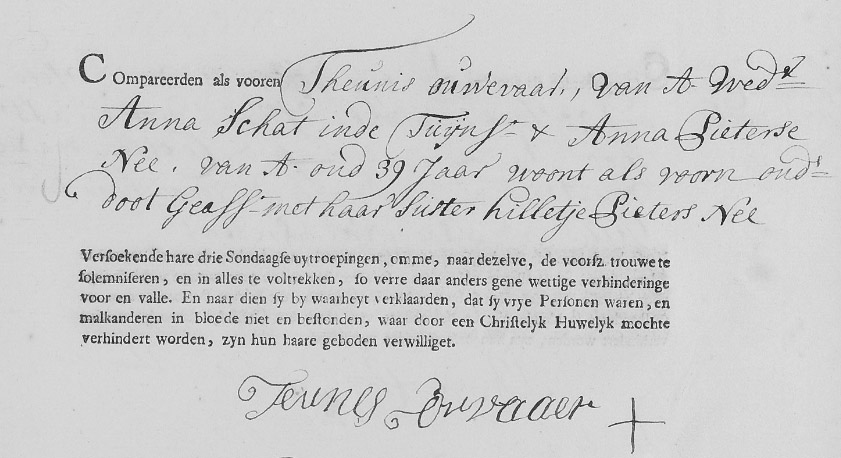 Compareerden als vooren Theunis ouwevaar, van A. Wedr
Anna Schat inde Tuijnst & Anna Pieterse
Nee. van A. oud 39 Jaar woont als voorn ouds
doot Geasst met haar Suster hilletje Pieters Nee
Versoekende hare drie Sondaagse uytroepingen, omme, naar dezelve, de voorsz. trouwe te
solemniseren, en in alles te voltrekken, so verre daar anders gene wettige verhinderinge
voor en valle. En naar dien sy by waarheyt verklaarden, dat sy vrye Personen waren, en
malkanderen in bloede niet en bestonden, waar door een Christelyk Huwelyk mochte
verhindert worden, zyn hun haare geboden verwilliget.
Teunes Ouvaaer +